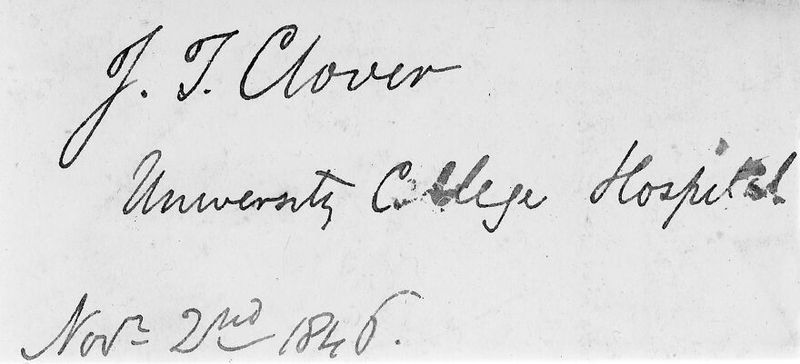 J. T. Clover
University College Hospital
Novr 2nd 1846.